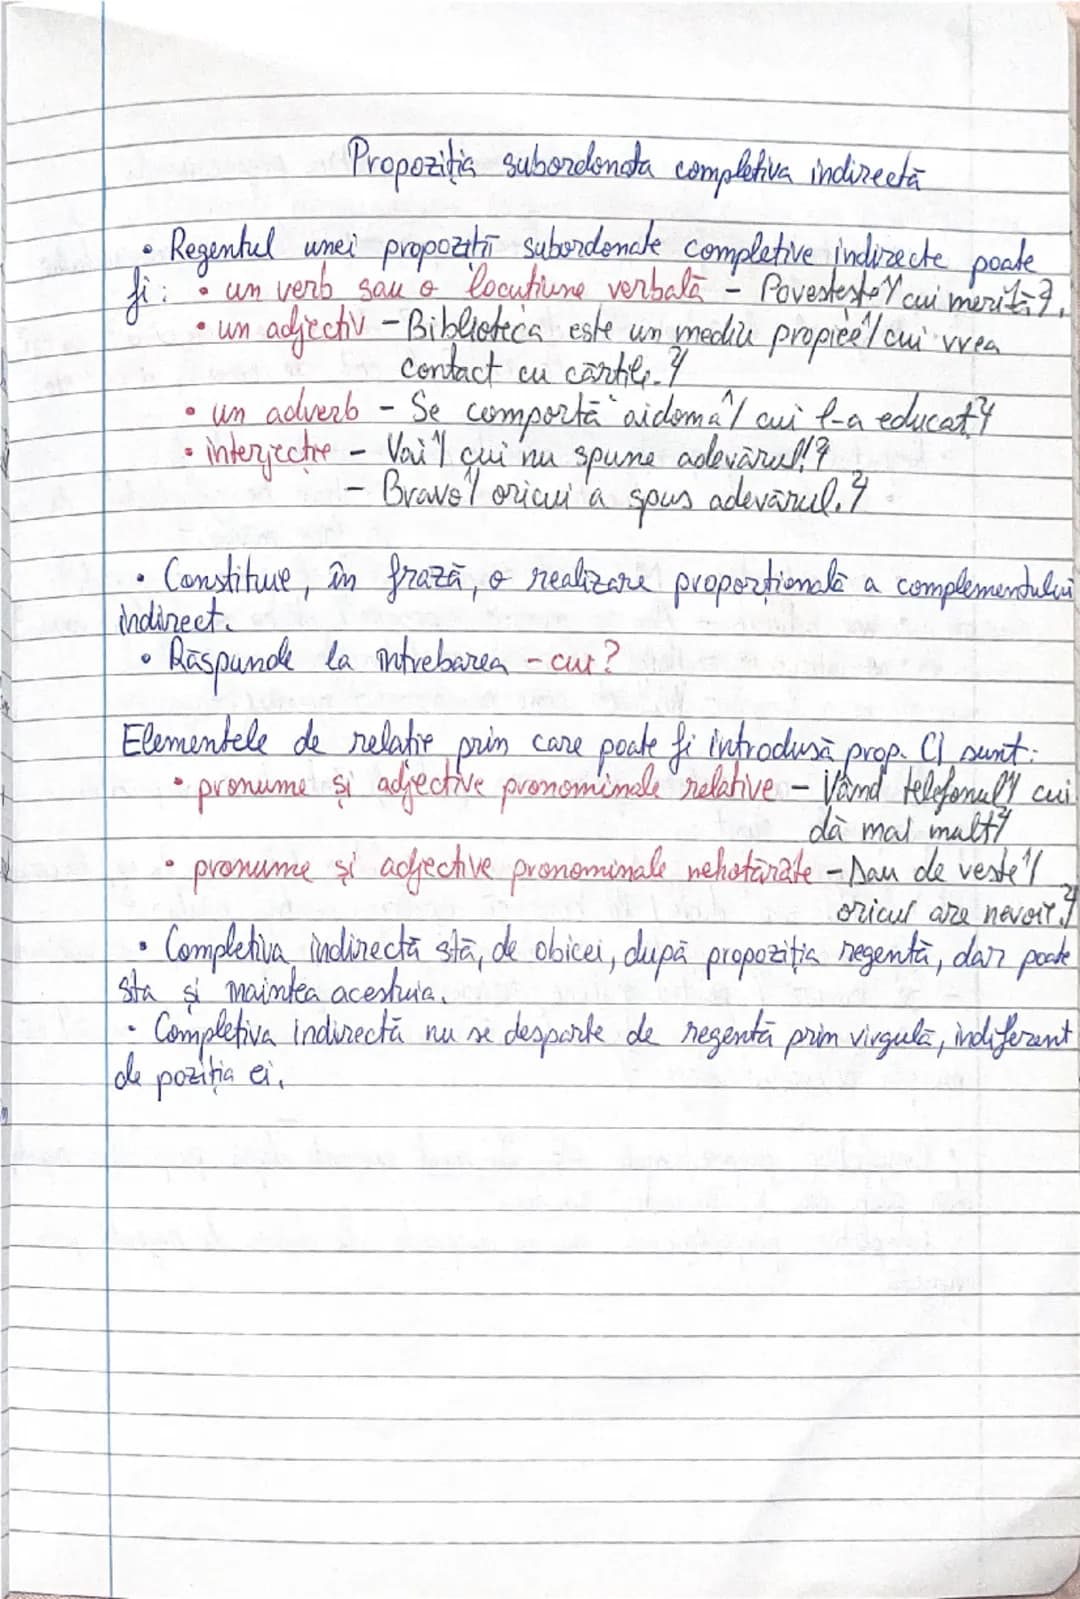 Propoziția subordonata completiva indirectă
• Regentul unei propoziții subordonate completive indirecte poate
fi: • un verb sau o locuțiune verbală - Povestește¹/ cui merită.²/
• un adjectiv - Biblioteca este un mediu propice¹/ cui vrea
contact cu cărțile.²/
• un adverb - Se comportă aidoma¹/ cui l-a educat²/
• interjecție - Vai¹/ cui nu spune adevărul!²/
- Bravo¹/ oricui a spus adevărul.²/
• Constituie, în frază, o realizare proporțională a complementului
indirect.
• Răspunde la întrebarea - cui?
Elementele de relație prin care poate fi introdusă prop. CI sunt:
• pronume și adjective pronominale relative - Vând telefonul¹/ cui
dă mai mult²/
• pronume și adjective pronominale nehotărâte - Dau de veste¹/
oricui are nevoie.²/
• Completiva indirectă stă, de obicei, după propoziția regentă, dar poate
sta și înaintea acestuia.
• Completiva indirectă nu se desparte de regentă prin virgulă, indiferent
de poziția ei.